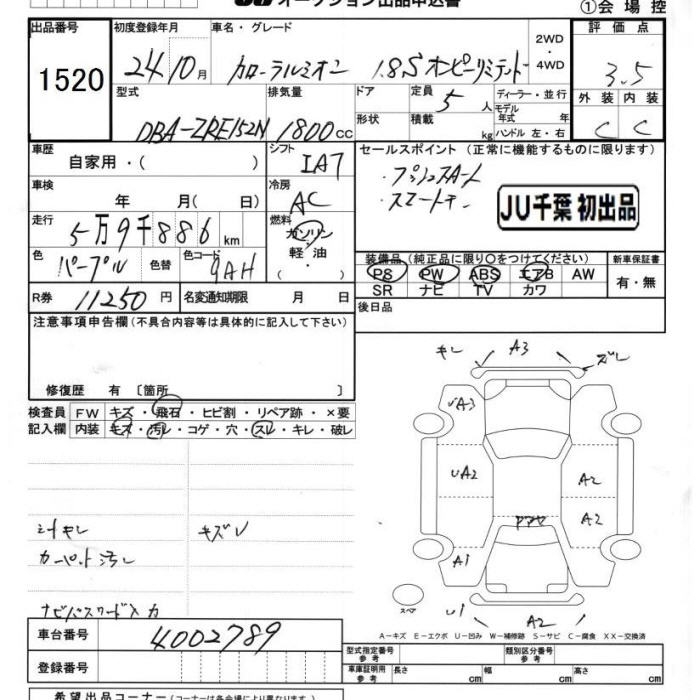 オークション出品申込書
①会場控
出品番号
1520
初度登録年月
24 10月
車名・グレード
カローラルミオン 1.8S オンビーリミテッド
2WD
・
4WD
評価点
3.5
外装 内装
C C
型式
DBA-ZRE152N
排気量
1800cc
ドア
形状
定員 5人
積載 kg
ディーラー・並行
モデル
年式 年
ハンドル 左・右
車歴
自家用・( )
シフト
IA7
セールスポイント (正常に機能するものに限ります)
・プッシュスタート
・スマートキー
JU千葉 初出品
車検
年 月( 日)
冷房
AC
走行
5万9千886km
燃料
ガソリン
・
軽油
・
色
パープル
色替
色コード
9AH
装備品(純正品に限り○をつけてください)
PS PW ABS エアB AW
SR ナビ TV カワ
新車保証書
有・無
R券
11250円
名変通知期限 月 日
後日品
注意事項申告欄(不具合内容等は具体的に記入して下さい)
修復歴 有 〔箇所 〕
検査員
記入欄
FW キズ・飛石・ヒビ割・リペア跡・×要
内装 キズ・汚レ・コゲ・穴・スレ・キレ・破レ
キレ A3 ズレ
UA3
UA2 A2
A2
A1
スペア
U1 A2
キズレ
カーペット汚レ
ナビパスワード入力
A-キズ E-エクボ U-凹み W-補修跡 S-サビ C-腐食 XX-交換済
車台番号
4002789
登録番号
型式指定番号
参考
類別区分番号
参考
車庫証明用
参考
長さ cm 幅 cm 高さ cm
希望出品コーナー(コーナーは各会場により異なります)